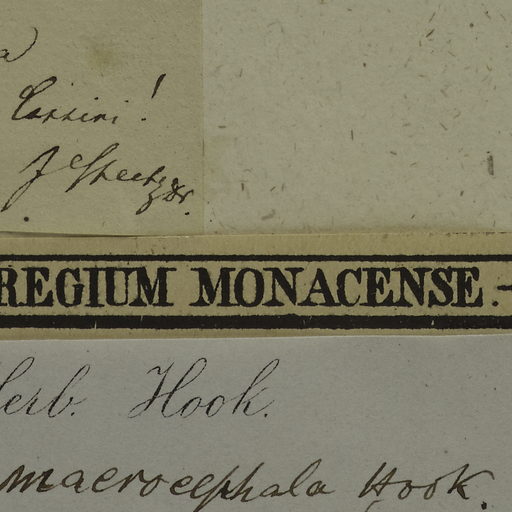 a
Cassini!
J Steetz Dr.
REGIUM MONACENSE.-
Herb. Hook.
macrocephala Hook.